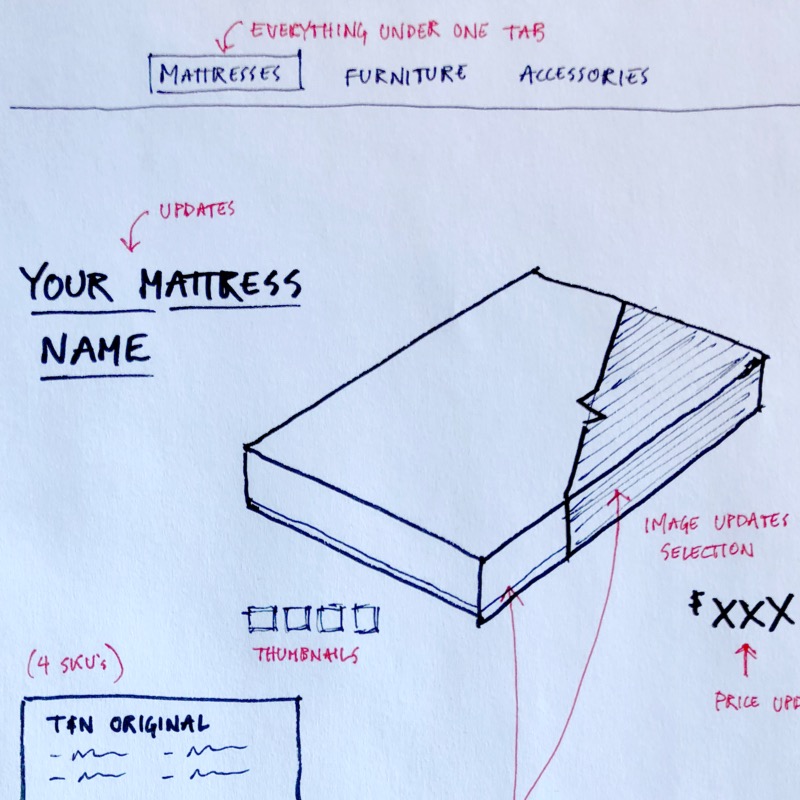 EVERYTHING UNDER ONE TAB
MATTRESSES FURNITURE ACCESSORIES
UPDATES
YOUR MATTRESS
NAME
IMAGE UPDATES
SELECTION
$XXX
THUMBNAILS
(4 SKU's)
PRICE UPD
T&N ORIGINAL